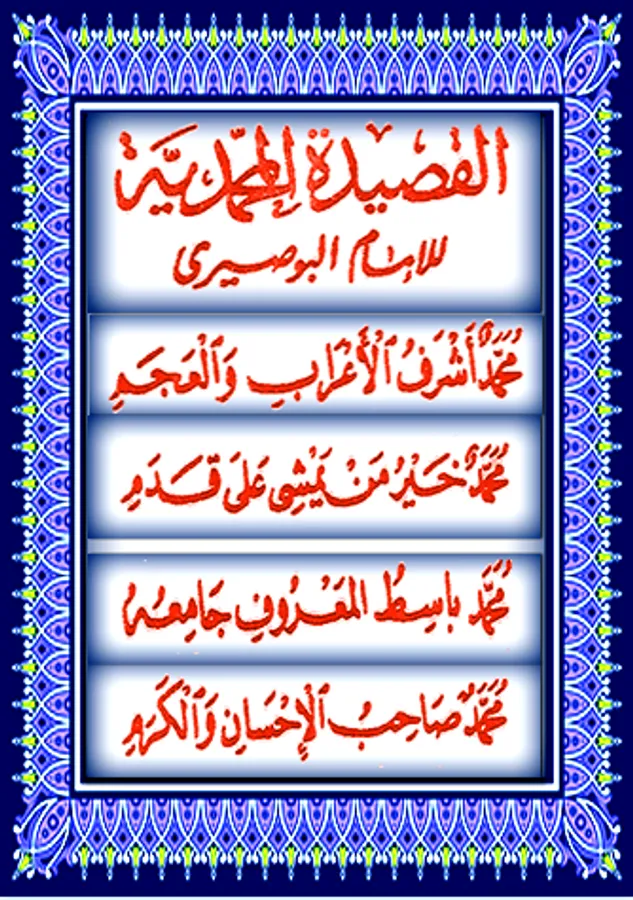 القصيدة المحمدية
للإمام البوصيرى
مُحَمَّدٌ أَشْرَفُ ٱلْأَعْرَابِ وَٱلْعَجَمِ
مُحَمَّدٌ خَيْرُ مَنْ يَمْشِى عَلَى قَدَمِ
مُحَمَّدٌ بَاسِطُ المَعْرُوفِ جَامِعُهُ
مُحَمَّدٌ صَاحِبُ ٱلْإِحْسَانِ وَٱلْكَرَمِ